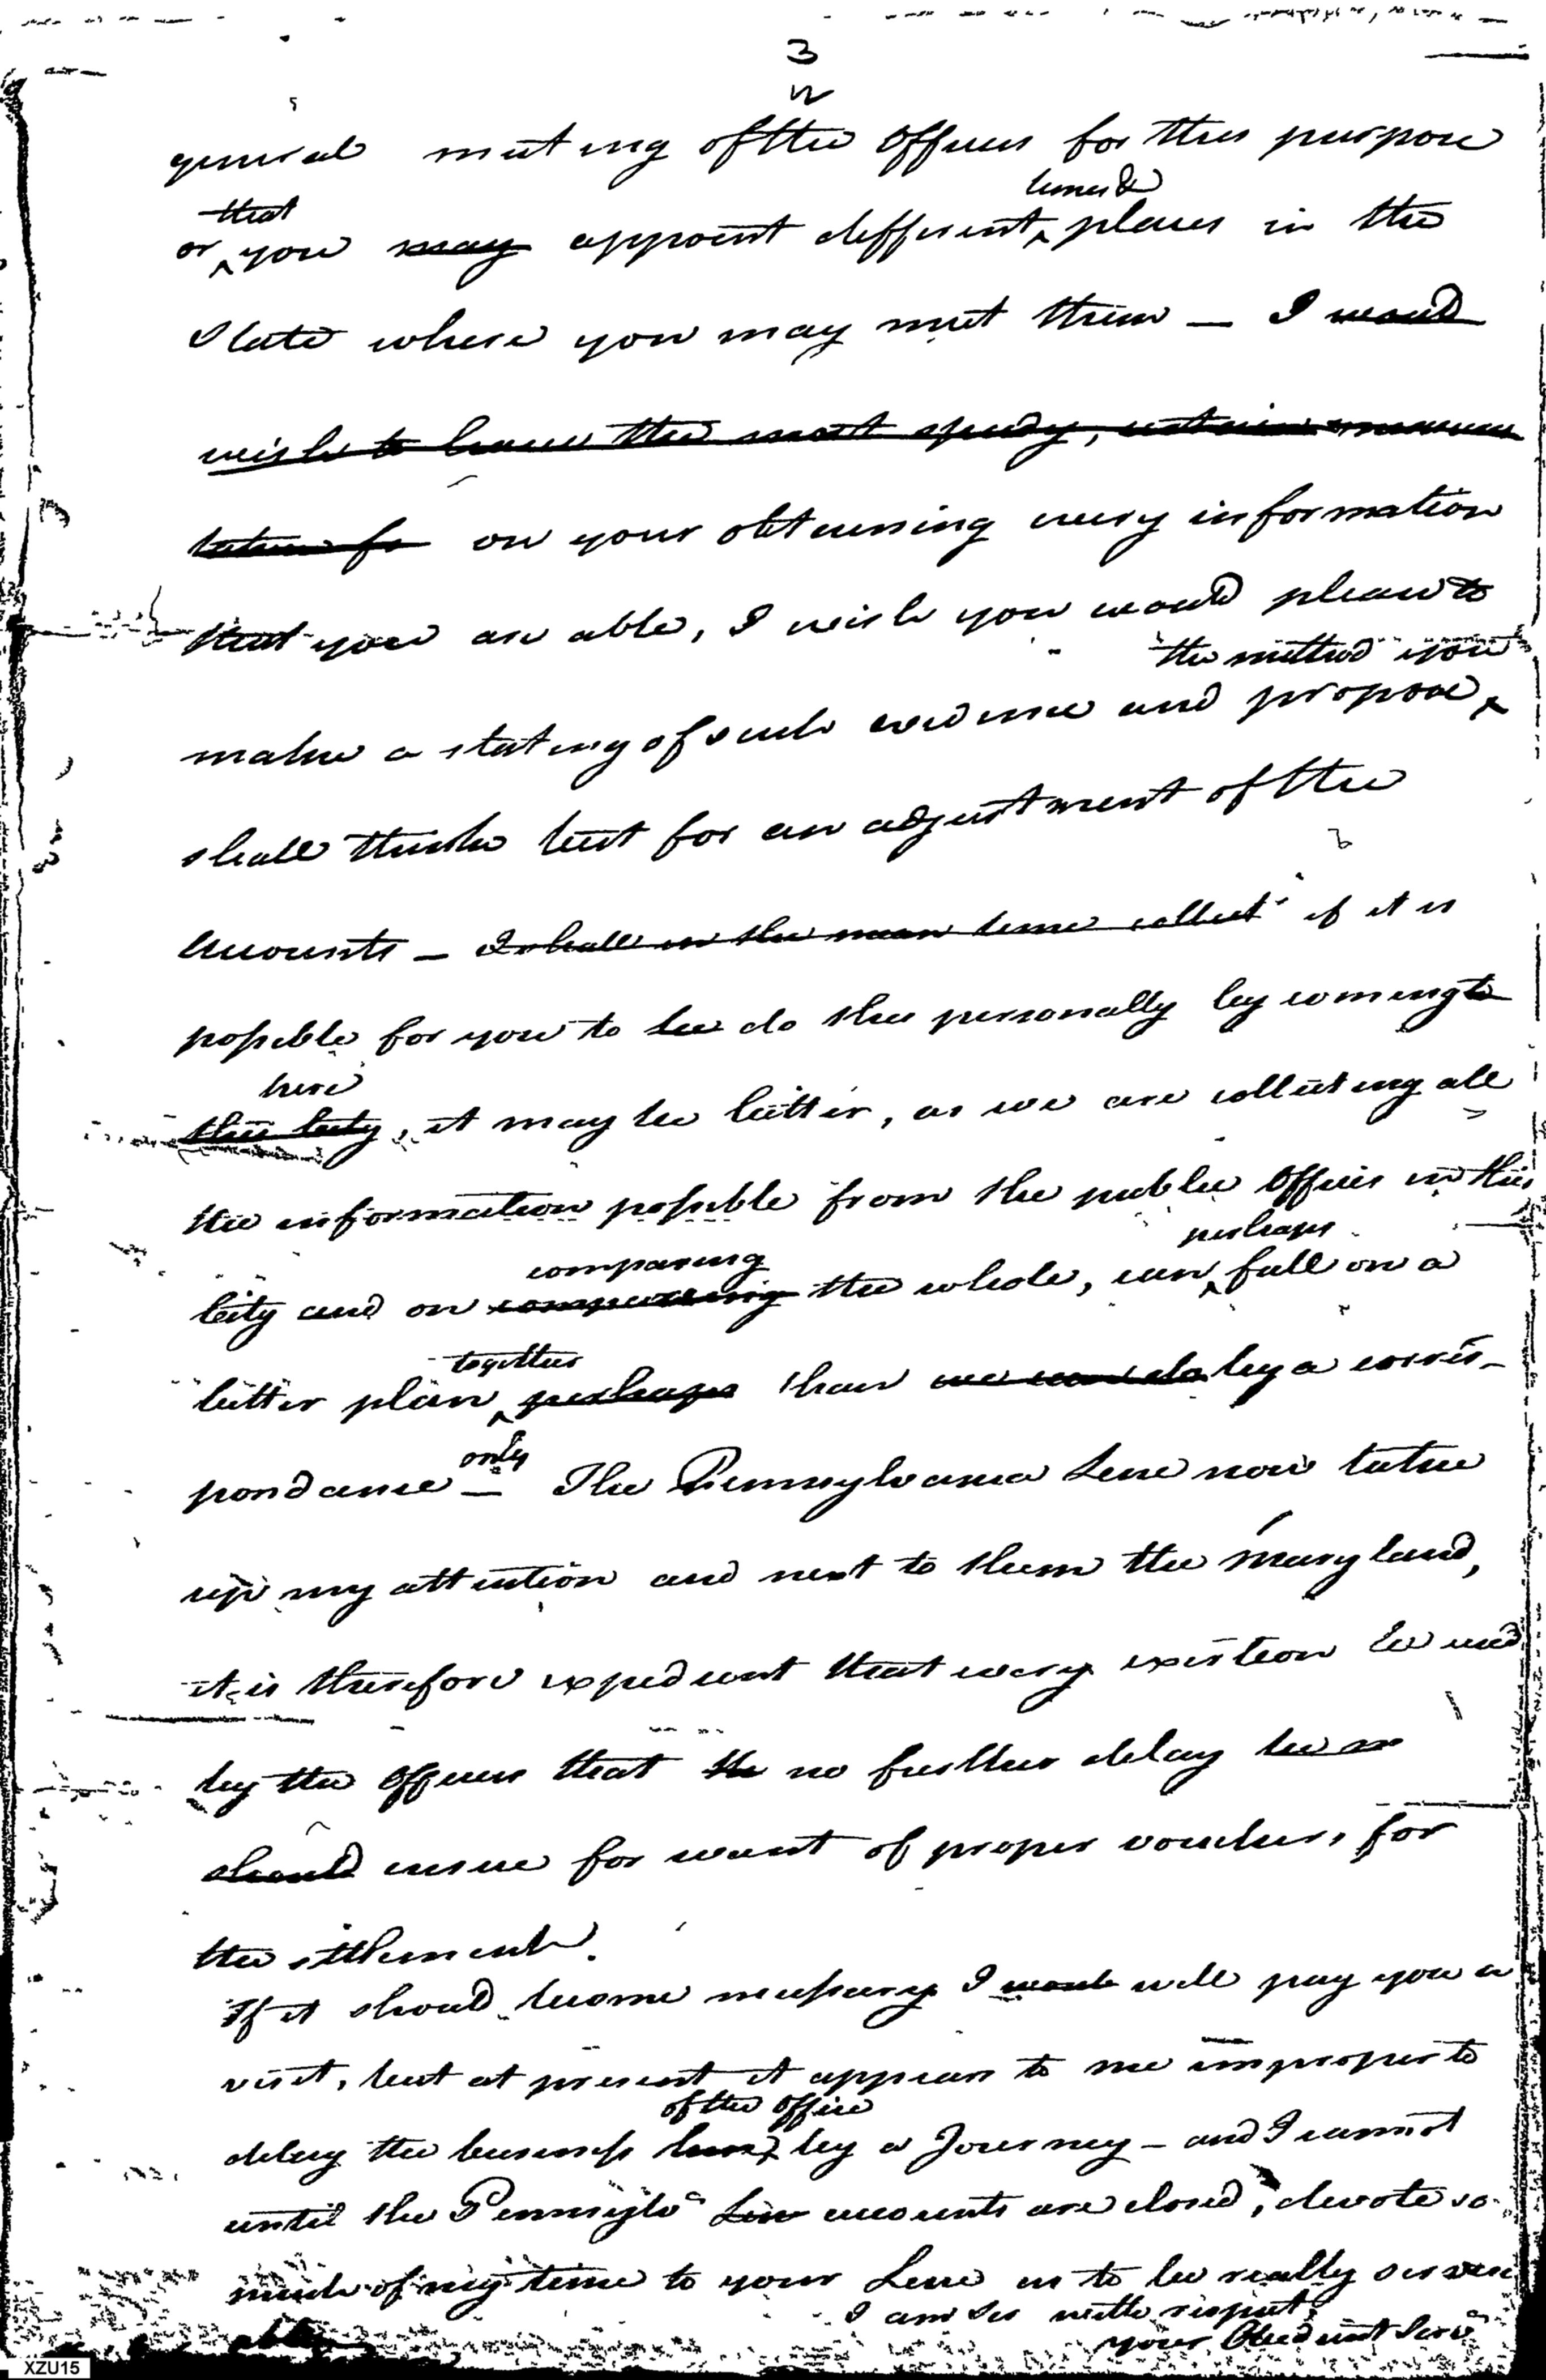 3
general meeting of the Officers for this purpose
that
times &
or you may appoint different places in the
State where you may meet them — I would
wish to have the most speedy,
on your obtaining every information
that you are able, I wish you would please to
the method you
make a stating of such evidence and propose
shall think best for an adjustment of the
accounts — I shall in the mean time collect if it is
possible for you to be do this personally by coming to
here
this City, it may be better, as we are collecting all
the information possible from the public Offices in this
comparing
perhaps
City and on the whole, can fall on a
together
better plan perhaps than we can do by a corres-
only
pondance — The Pennsylvania Line now takes
up my attention and next to them the Maryland,
it is therefore expedient that every exertion be used
by the Officers that the no further delay be
should ensue for want of proper vouchers for
the settlement.
If it should become necessary I would will pay you a
visit, but at present it appears to me improper to
of the Office
delay the business here by a Journey — and I cannot
until the Pennsylva Line accounts are closed, devote so
much of my time to your Line as to be really service
able
I am Sir with respect
your Obedient Serv
XZU15